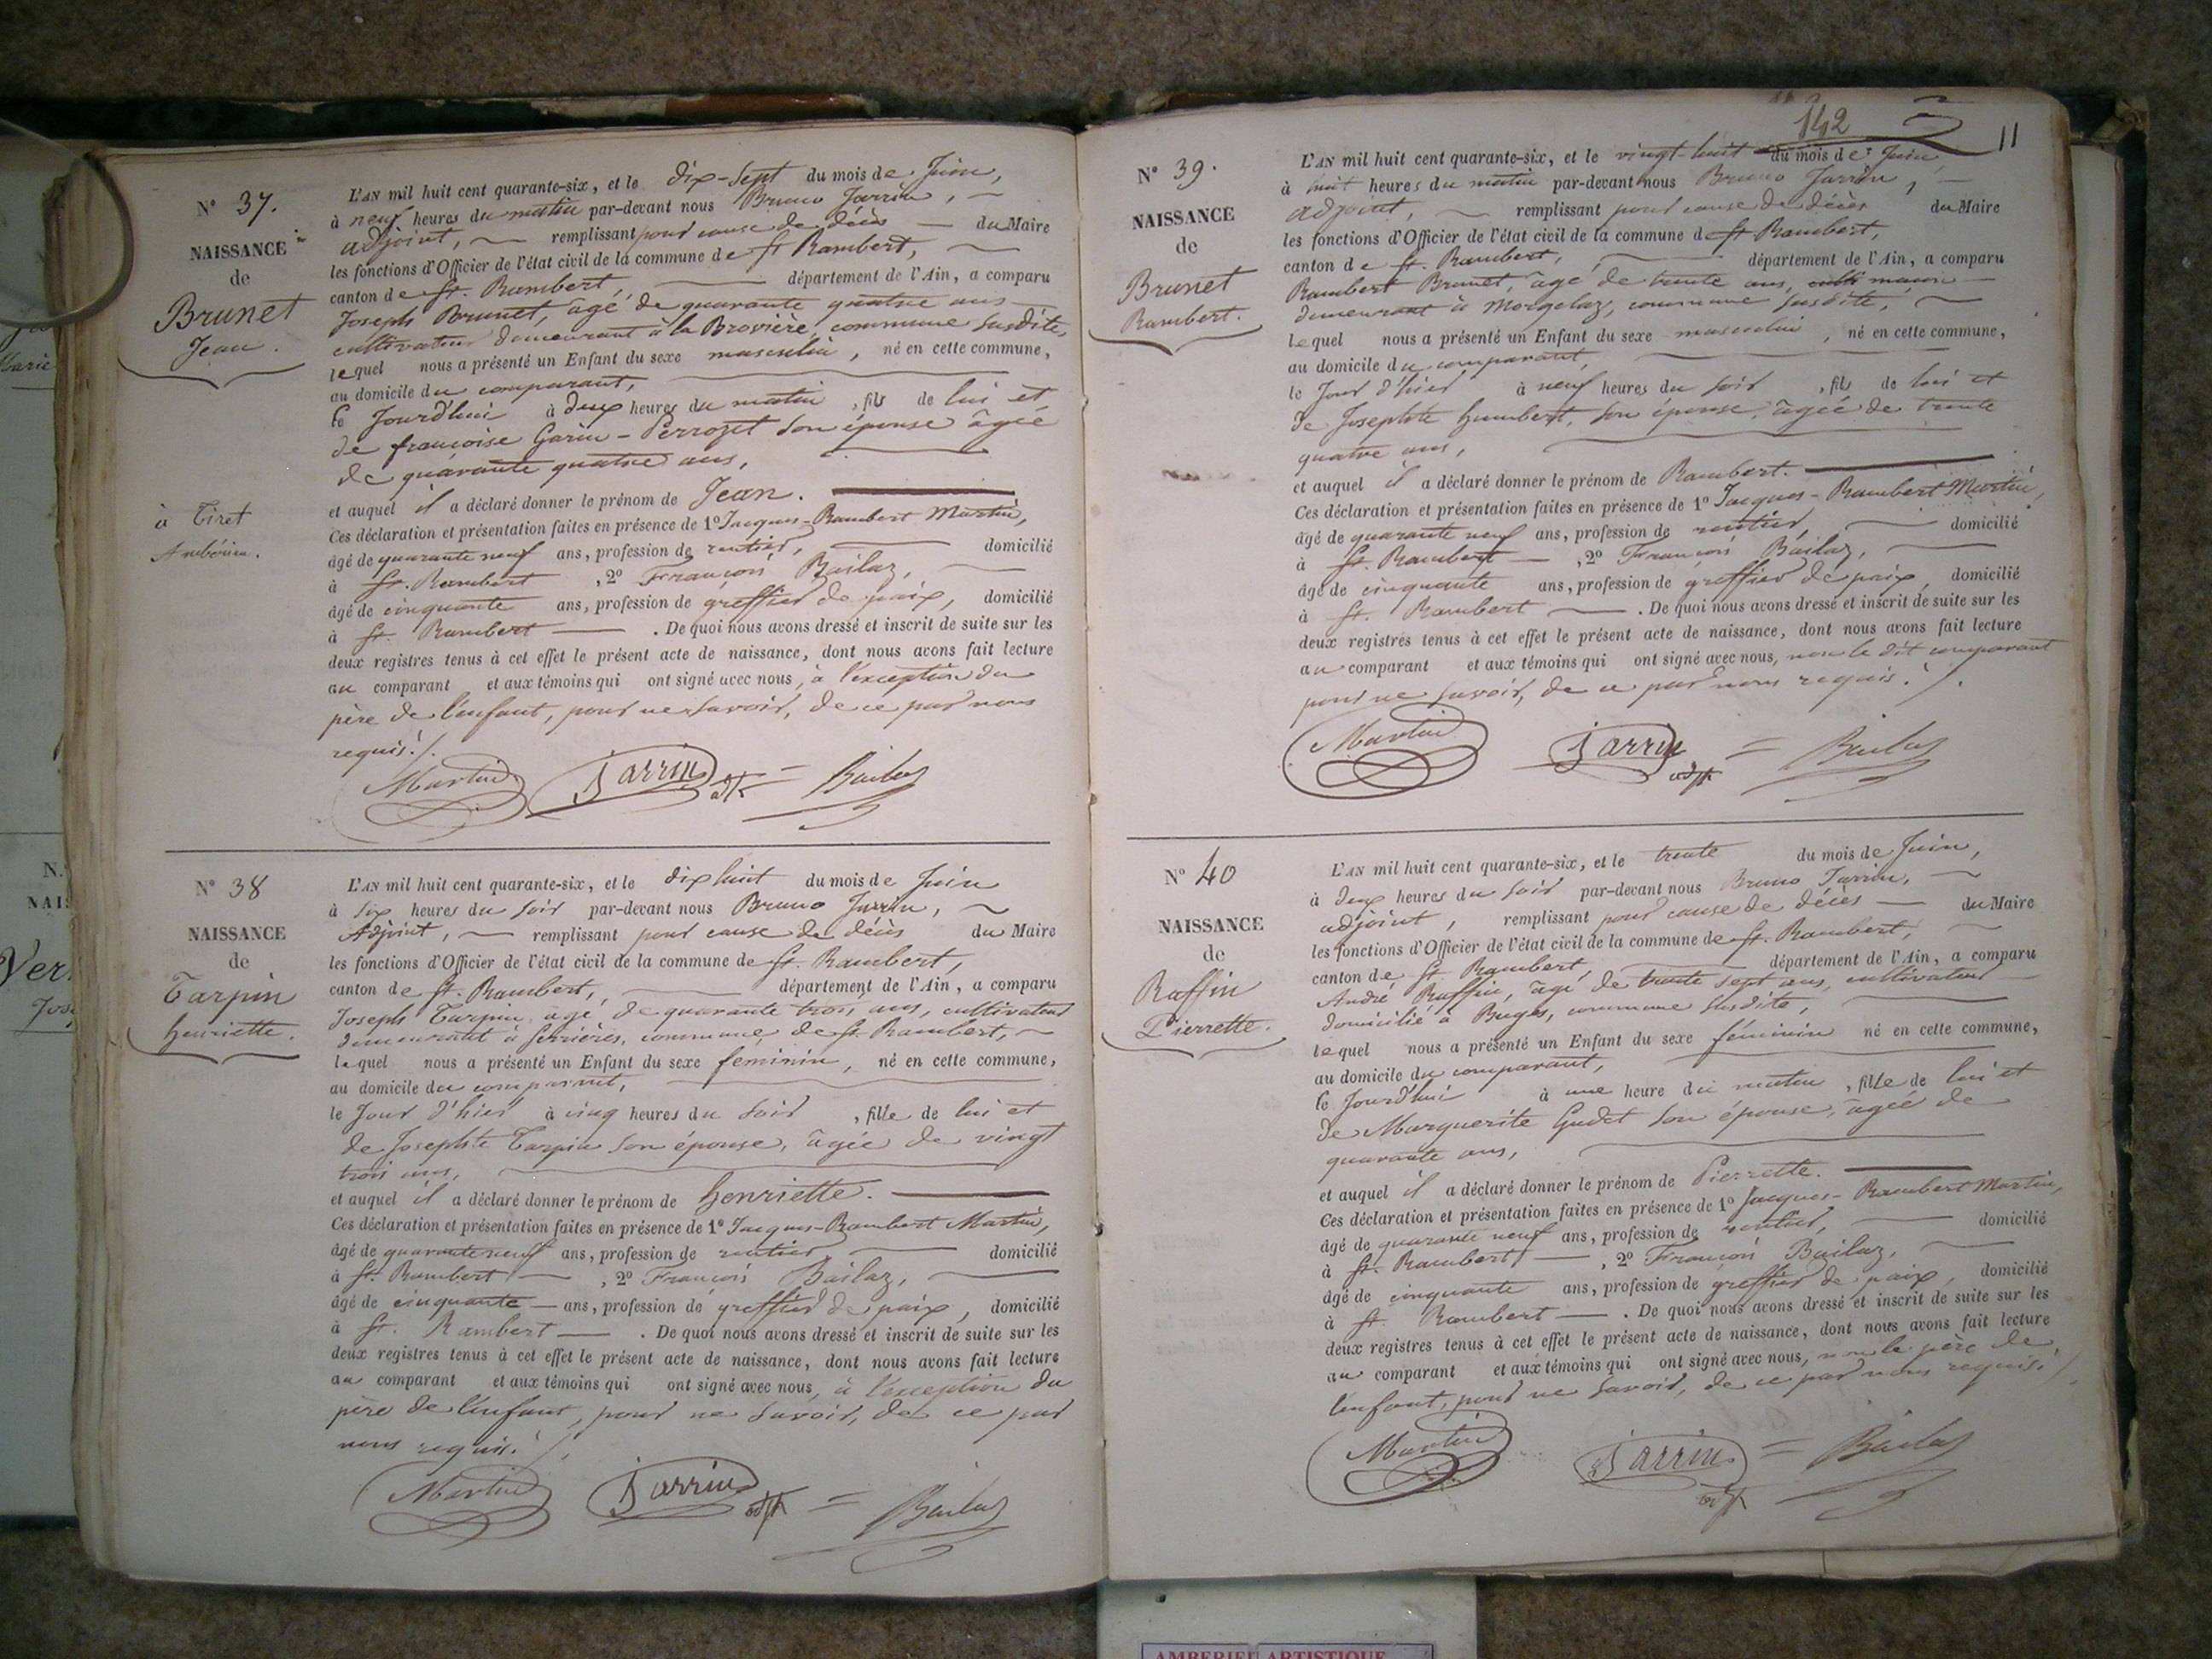 N° 37.
NAISSANCE
de
Brunet
Jean.
à Tiret
Ambérieu.
L'AN mil huit cent quarante-six, et le dix-sept du mois de Juin,
à neuf heures du matin par-devant nous Bruno Jarrin,
adjoint, remplissant pour cause de décès du Maire
les fonctions d'Officier de l'état civil de la commune de St Rambert,
canton de St. Rambert, département de l'Ain, a comparu
Joseph Brunet, âgé de quarante quatre ans
cultivateur demeurant à la Brovière, commune susdite,
lequel nous a présenté un Enfant du sexe masculin, né en cette commune,
au domicile du comparant,
le Jourd'hui à deux heures du matin, fils de lui et
de françoise Garin-Perrozet son épouse âgée
de quarante quatre ans,
et auquel il a déclaré donner le prénom de Jean.
Ces déclaration et présentation faites en présence de 1° Jacques-Rambert Martin,
âgé de quarante neuf ans, profession de rentier, domicilié
à St. Rambert, 2° François Bailaz,
âgé de cinquante ans, profession de greffier de paix, domicilié
à St. Rambert. De quoi nous avons dressé et inscrit de suite sur les
deux registres tenus à cet effet le présent acte de naissance, dont nous avons fait lecture
au comparant et aux témoins qui ont signé avec nous, à l'exception du
père de l'enfant, pour ne savoir, de ce par nous
requis./.
Martin Jarrin adjt = Bailaz
N° 38
NAISSANCE
de
Tarpin
henriette.
L'AN mil huit cent quarante-six, et le dix huit du mois de Juin
à six heures du soir par-devant nous Bruno Jarrin,
Adjoint, remplissant pour cause de décès du Maire
les fonctions d'Officier de l'état civil de la commune de St. Rambert,
canton de St. Rambert, département de l'Ain, a comparu
Joseph Tarpin âgé de quarante trois ans, cultivateur
demeurant à Serrières, commune de St. Rambert,
lequel nous a présenté un Enfant du sexe feminin, né en cette commune,
au domicile du comparant,
le Jour d'hier à cinq heures du soir, fille de lui et
de Josephte Tarpin son épouse, âgée de vingt
trois ans,
et auquel il a déclaré donner le prénom de henriette.
Ces déclaration et présentation faites en présence de 1° Jacques-Rambert Martin,
âgé de quarante neuf ans, profession de rentier, domicilié
à St. Rambert, 2° François Bailaz,
âgé de cinquante ans, profession de greffier de paix, domicilié
à St. Rambert. De quoi nous avons dressé et inscrit de suite sur les
deux registres tenus à cet effet le présent acte de naissance, dont nous avons fait lecture
au comparant et aux témoins qui ont signé avec nous, à l'exception du
père de l'enfant, pour ne savoir, de ce par
nous requis./.
Martin Jarrin adjt = Bailaz
142
11
N° 39.
NAISSANCE
de
Brunet
Rambert.
L'AN mil huit cent quarante-six, et le vingt-huit du mois de Juin,
à huit heures du matin par-devant nous Bruno Jarrin,
adjoint, remplissant pour cause de décès du Maire
les fonctions d'Officier de l'état civil de la commune de St Rambert,
canton de St. Rambert, département de l'Ain, a comparu
Rambert Brunet, âgé de trente ans,
demeurant à Morgelaz, commune susdite,
lequel nous a présenté un Enfant du sexe masculin, né en cette commune,
au domicile du comparant,
le Jour d'hier à neuf heures du soir, fils de lui et
de Josephte humbert, son épouse, âgée de trente
quatre ans,
et auquel il a déclaré donner le prénom de Rambert.
Ces déclaration et présentation faites en présence de 1° Jacques-Rambert Martin,
âgé de quarante neuf ans, profession de rentier, domicilié
à St. Rambert, 2° François Bailaz,
âgé de cinquante ans, profession de greffier de paix, domicilié
à St. Rambert. De quoi nous avons dressé et inscrit de suite sur les
deux registres tenus à cet effet le présent acte de naissance, dont nous avons fait lecture
au comparant et aux témoins qui ont signé avec nous, non le dit comparant
pour ne savoir, de ce par nous requis./.
Martin Jarrin adjt = Bailaz
N° 40
NAISSANCE
de
Ruffin
Pierrette.
L'AN mil huit cent quarante-six, et le trente du mois de Juin,
à deux heures du soir par-devant nous Bruno Jarrin,
adjoint, remplissant pour cause de décès du Maire
les fonctions d'Officier de l'état civil de la commune de St. Rambert,
canton de St. Rambert, département de l'Ain, a comparu
André Ruffin, âgé de trente sept ans, cultivateur
domicilié à Buges, commune susdite,
lequel nous a présenté un Enfant du sexe féminin né en cette commune,
au domicile du comparant,
le Jourd'hui à une heure du matin, fille de lui et
de Marguerite Gudet son épouse, âgée de
quarante ans,
et auquel il a déclaré donner le prénom de Pierrette.
Ces déclaration et présentation faites en présence de 1° Jacques-Rambert Martin,
âgé de quarante neuf ans, profession de rentier, domicilié
à St. Rambert, 2° François Bailaz,
âgé de cinquante ans, profession de greffier de paix, domicilié
à St. Rambert. De quoi nous avons dressé et inscrit de suite sur les
deux registres tenus à cet effet le présent acte de naissance, dont nous avons fait lecture
au comparant et aux témoins qui ont signé avec nous, non le père de
l'enfant, pour ne savoir, de ce par nous requis./.
Martin Jarrin adjt = Bailaz
AMBERIEU ARTISTIQUE